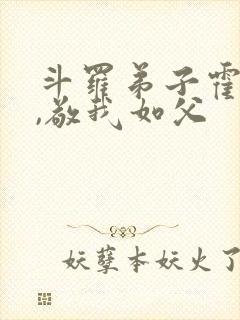 斗罗弟子霍
,敬我如父
妖孽本妖火了